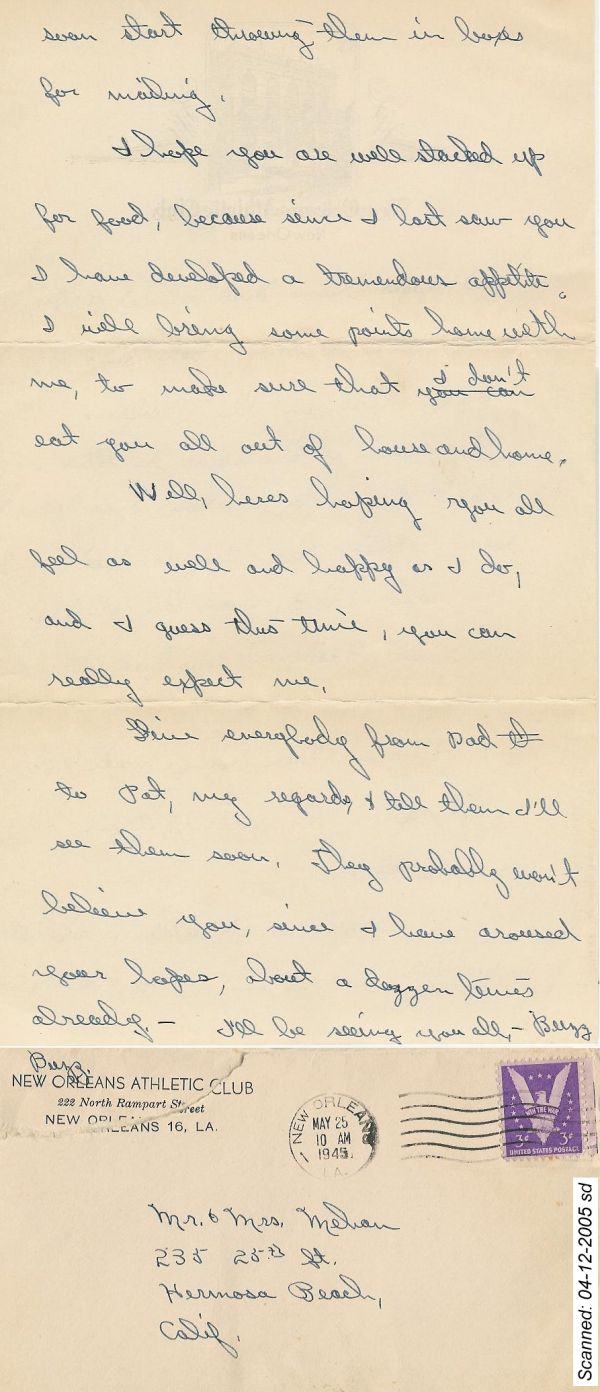 soon start throwing them in boxes
for mailing.
I hope you are well stacked up
for food, because since I last saw you
I have developed a tremendous appetite.
I will bring some points home with
me, to make sure that you can I don't
eat you all out of house and home.
Well, heres hoping you all
feel as well and happy as I do,
and I guess this time, you can
really expect me.
Give everybody from Dad
to Pat, my regards, & tell them I'll
see them soon. They probably won't
believe you, since I have aroused
your hopes, about a dozzen times
already. — I'll be seeing you all, — Buzz
Buzz.
NEW ORLEANS ATHLETIC CLUB
222 North Rampart Street
NEW ORLEANS 16, LA.
NEW ORLEANS
MAY 25
10 AM
1945
LA.
WIN THE WAR
3¢ 3¢
UNITED STATES POSTAGE
Mr. & Mrs. Mehan
235 25th St.
Hermosa Beach,
Calif.
Scanned: 04-12-2005 sd